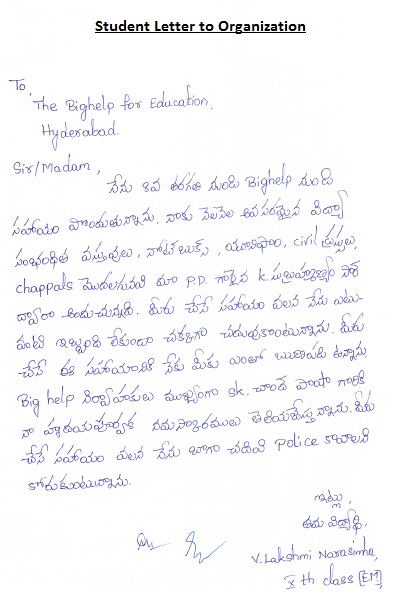 Student Letter to Organization
To,
The Bighelp for Education,
Hyderabad.
Sir/Madam,
నేను 8వ తరగతి నుండి Bighelp నుండి
సహాయం పొందుతున్నాను. నాకు నెలనెల అవసరమైన విద్యా
సంభందిత వస్తువులు, నోట్ బుక్స్, యూనిఫాం, civil డ్రస్సులు,
chappals మొదలగునవి మా P.D. గారైన K. సుబ్రహ్మణ్యం సార్
ద్వారా అందుచున్నవి. మీరు చేసే సహాయం వలన నేను ఎటు-
వంటి ఇబ్బంది లేకుండా చక్కగా చదువుకొంటున్నాను. మీరు
చేసే ఈ సహాయానికి నేను మీకు ఎంతో ఋణపడి ఉన్నాను
Big help నిర్వాహకులు ముఖ్యంగా SK. చాంద్ పాషా గారికి
నా హృదయపూర్వక నమస్కారములు తెలియచేస్తున్నాను. మీరు
చేసే సహాయం వలన నేను బాగా చదివి Police కావాలని
కోరుకుంటున్నాను.
ఇట్లు,
తమ విద్యార్థి,
V. Lakshmi Narasimha,
X th class [EM]